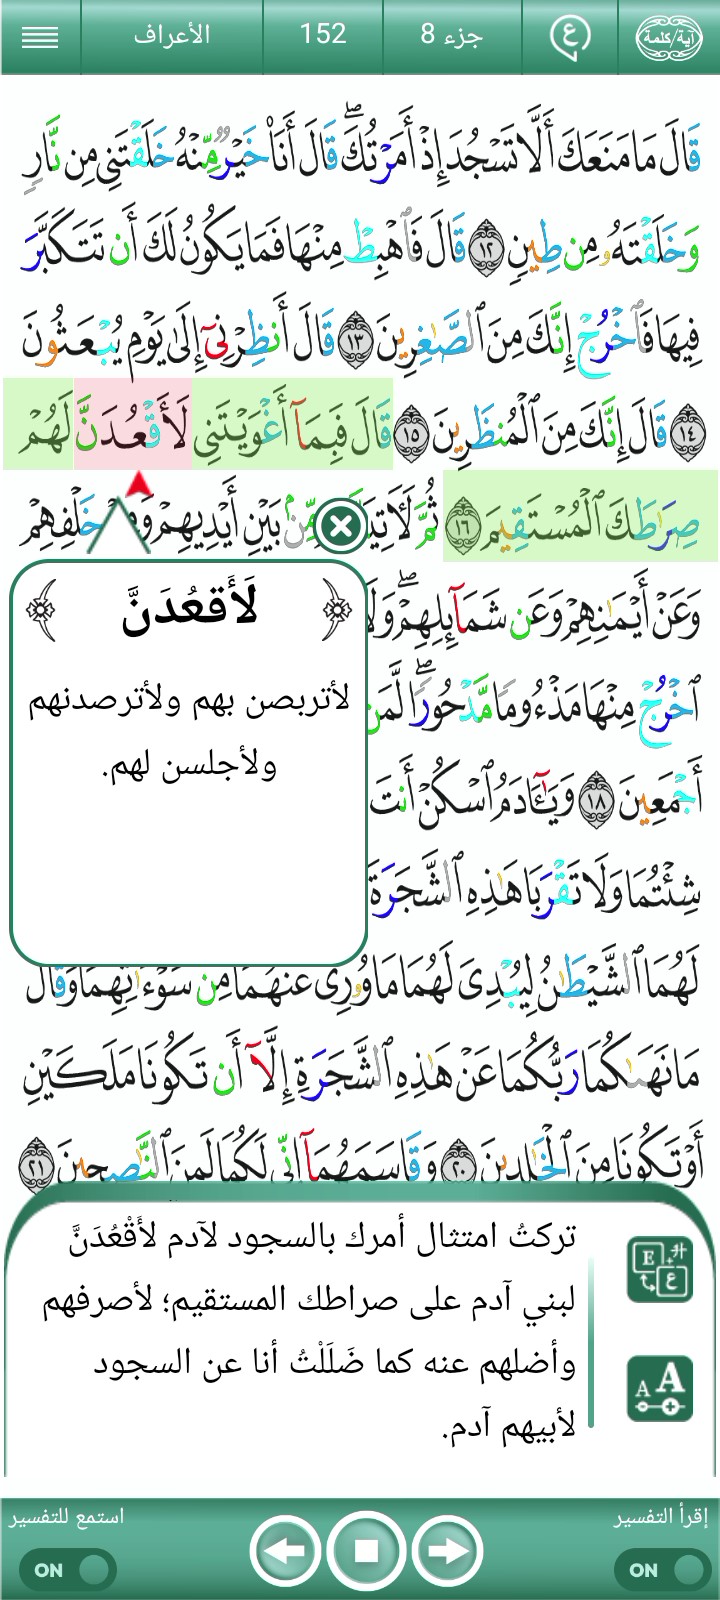 آية/كلمة
ع
جزء 8
152
الأعراف
قَالَ مَا مَنَعَكَ أَلَّا تَسۡجُدَ إِذۡ أَمَرۡتُكَۖ قَالَ أَنَا۠ خَيۡرٞ مِّنۡهُ خَلَقۡتَنِي مِن نَّارٖ
وَخَلَقۡتَهُۥ مِن طِينٖ ١٢ قَالَ فَٱهۡبِطۡ مِنۡهَا فَمَا يَكُونُ لَكَ أَن تَتَكَبَّرَ
فِيهَا فَٱخۡرُجۡ إِنَّكَ مِنَ ٱلصَّٰغِرِينَ ١٣ قَالَ أَنظِرۡنِيٓ إِلَىٰ يَوۡمِ يُبۡعَثُونَ
١٤ قَالَ إِنَّكَ مِنَ ٱلۡمُنظَرِينَ ١٥ قَالَ فَبِمَآ أَغۡوَيۡتَنِي لَأَقۡعُدَنَّ لَهُمۡ
صِرَٰطَكَ ٱلۡمُسۡتَقِيمَ ١٦ ثُمَّ بَيۡنِ أَيۡدِيهِمۡ خَلۡفِهِمۡ
وَعَنۡ أَيۡمَٰنِهِمۡ وَعَن شَمَآئِلِهِمۡۖ
ٱخۡرُجۡ مِنۡهَا مَذۡءُومٗا مَّدۡحُورٗاۖ لَّمَن
أَجۡمَعِينَ ١٨ وَيَٰٓـَٔادَمُ ٱسۡكُنۡ أَنتَ
شِئۡتُمَا وَلَا تَقۡرَبَا هَٰذِهِ ٱلشَّجَرَةَ
لَهُمَا ٱلشَّيۡطَٰنُ لِيُبۡدِيَ لَهُمَا مَا وُۥرِيَ عَنۡهُمَا مِن سَوۡءَٰتِهِمَا وَقَالَ
مَا نَهَىٰكُمَا رَبُّكُمَا عَنۡ هَٰذِهِ ٱلشَّجَرَةِ إِلَّآ أَن تَكُونَا مَلَكَيۡنِ
أَوۡ تَكُونَا مِنَ ٱلۡخَٰلِدِينَ ٢٠ وَقَاسَمَهُمَآ إِنِّي لَكُمَا لَمِنَ ٱلنَّٰصِحِينَ ٢١
لَأَقعُدَنَّ
لأتربصن بهم ولأترصدنهم
ولأجلسن لهم.
تركتُ امتثال أمرك بالسجود لآدم لأَقْعُدَنَّ
لبني آدم على صراطك المستقيم؛ لأصرفهم
وأضلهم عنه كما ضَلَلْتُ أنا عن السجود
لأبيهم آدم.
E
ع
A A
إقرأ التفسير
استمع للتفسير
ON
ON